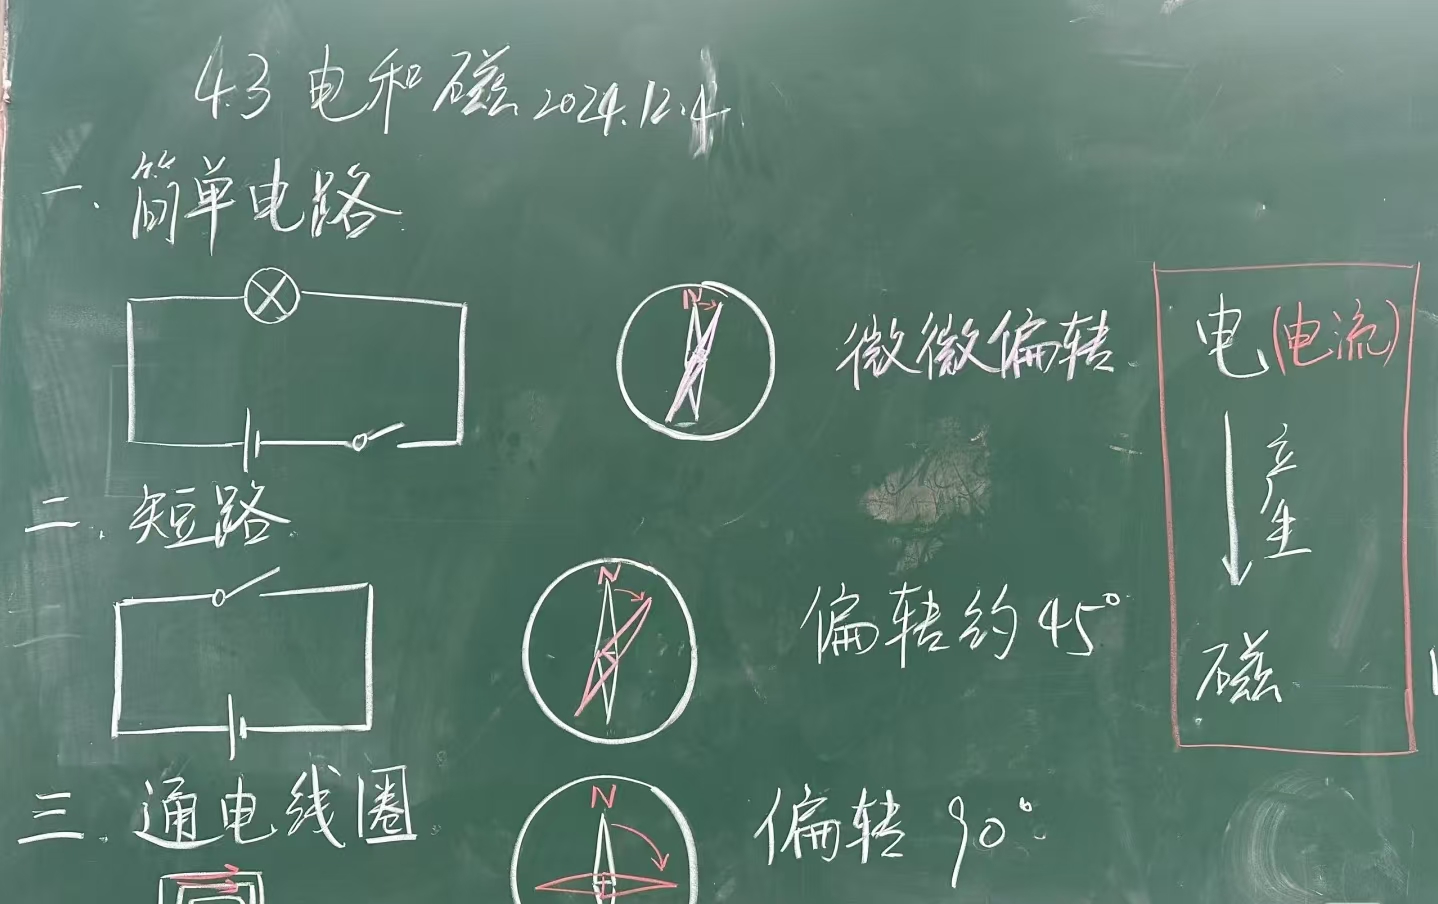 4.3 电和磁 2024.12.4
一. 简单电路
N
微微偏转
电(电流)
产生
磁
二. 短路
N
偏转约45°
三. 通电线圈
N
偏转90°